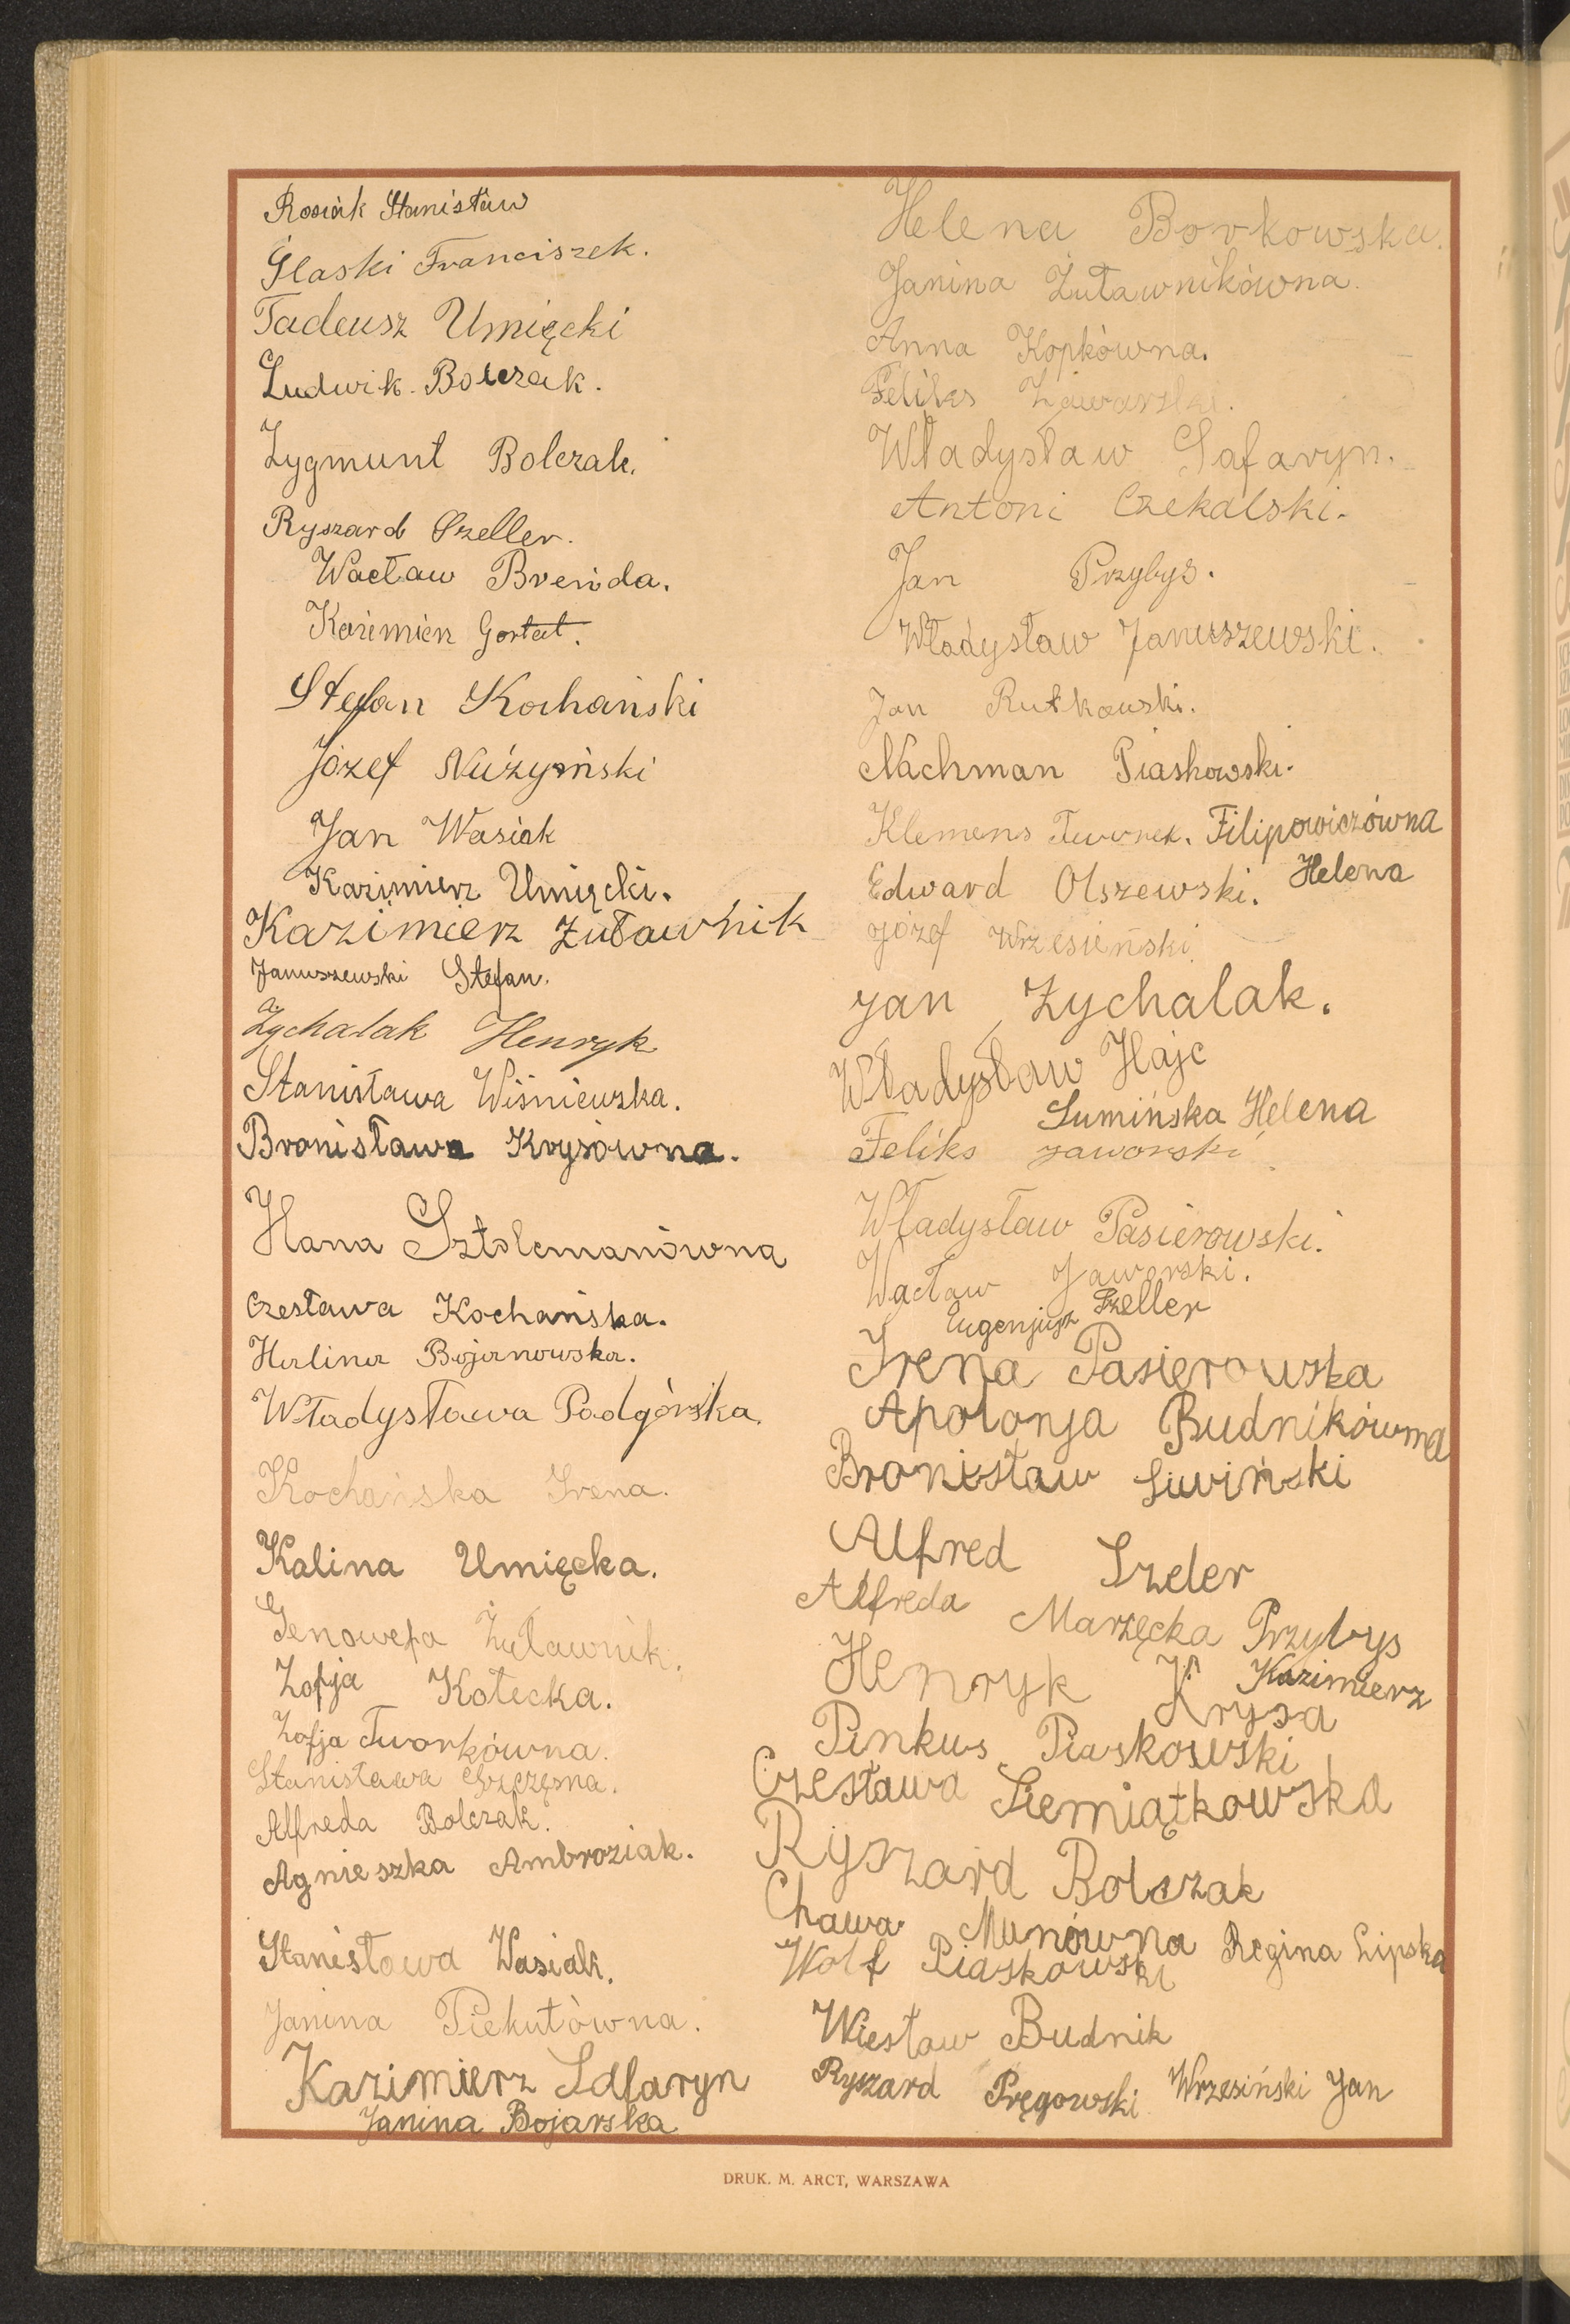 Rosiak Stanisław
Ślaski Franciszek.
Tadeusz Umięcki
Ludwik Bolczak.
Zygmunt Bolczak.
Ryszard Szeller.
Wacław Brenda.
Kazimierz Gortat.
Stefan Kochański
Józef
Jan Wasiak
Kazimierz Umięcki.
Kazimierz Żuławnik
Januszewski Stefan.
Zychalak Henryk
Stanisława Wiśniewska.
Bronisława Krysówna.
Hana Sztolcmanówna
Czesława Kochańska.
Halina Bojanowska.
Władysława Podgórska.
Kochańska Irena.
Kalina Umięcka.
Genowefa Żuławnik.
Zofja Kotecka.
Zofja Tworkówna.
Stanisława Szczęsna.
Alfreda Bolczak.
Agnieszka Ambroziak.
Stanisława Wasiak.
Janina Piekutówna.
Kazimierz Safaryn
Janina Bojarska
Helena Borkowska.
Janina Żuławnikówna.
Anna Kopkówna.
Feliks
Władysław Safaryn.
Antoni Czekalski.
Jan Przybys.
Władysław Januszewski.
Jan Rutkowski.
Nachman Piaskowski.
Klemens Tworek. Filipowiczówna
Edward Olszewski. Helena
Józef Wrzesieński.
Jan Zychalak.
Władysław Hajc
Sumińska Helena
Feliks Jaworski
Władysław Pasierowski.
Wacław Jaworski.
Eugenjusz Szeller
Irena Pasierowska
Apolonja Budnikówna
Bronisław Liwiński
Alfred Szeler
Alfreda Marzęcka Przybys
Kazimierz
Henryk Krysa
Pinkus Piaskowski
Czesława Siemiątkowska
Ryszard Bolczak
Chawa Munówna Regina Lipska
Wolf Piaskowski
Wiesław Budnik
Ryszard Pręgowski Wrzesiński Jan
DRUK. M. ARCT, WARSZAWA